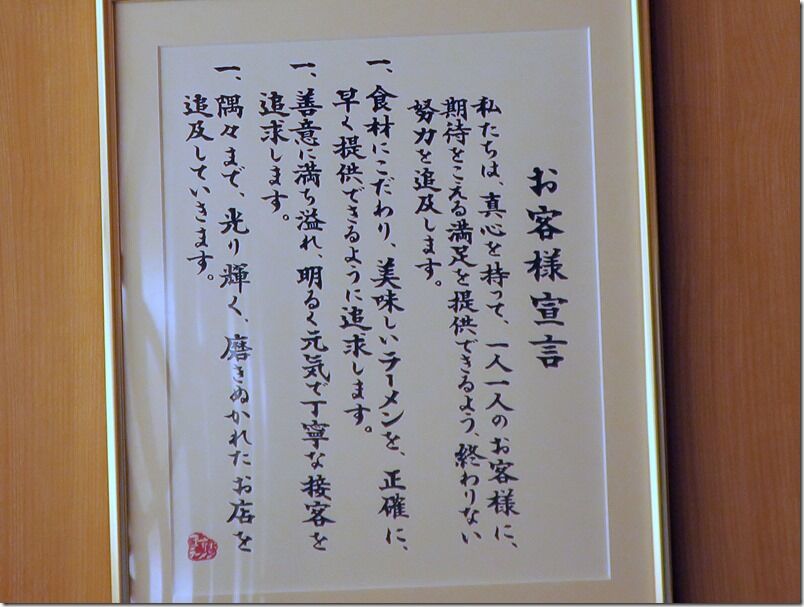 お客様宣言
私たちは、真心を持って、一人一人のお客様に、
期待をこえる満足を提供できるよう、終わりない
努力を追及します。
一、食材にこだわり、美味しいラーメンを、正確に、
早く提供できるように追求します。
一、善意に満ち溢れ、明るく元気で丁寧な接客を
追求します。
一、隅々まで、光り輝く、磨きぬかれたお店を
追及していきます。